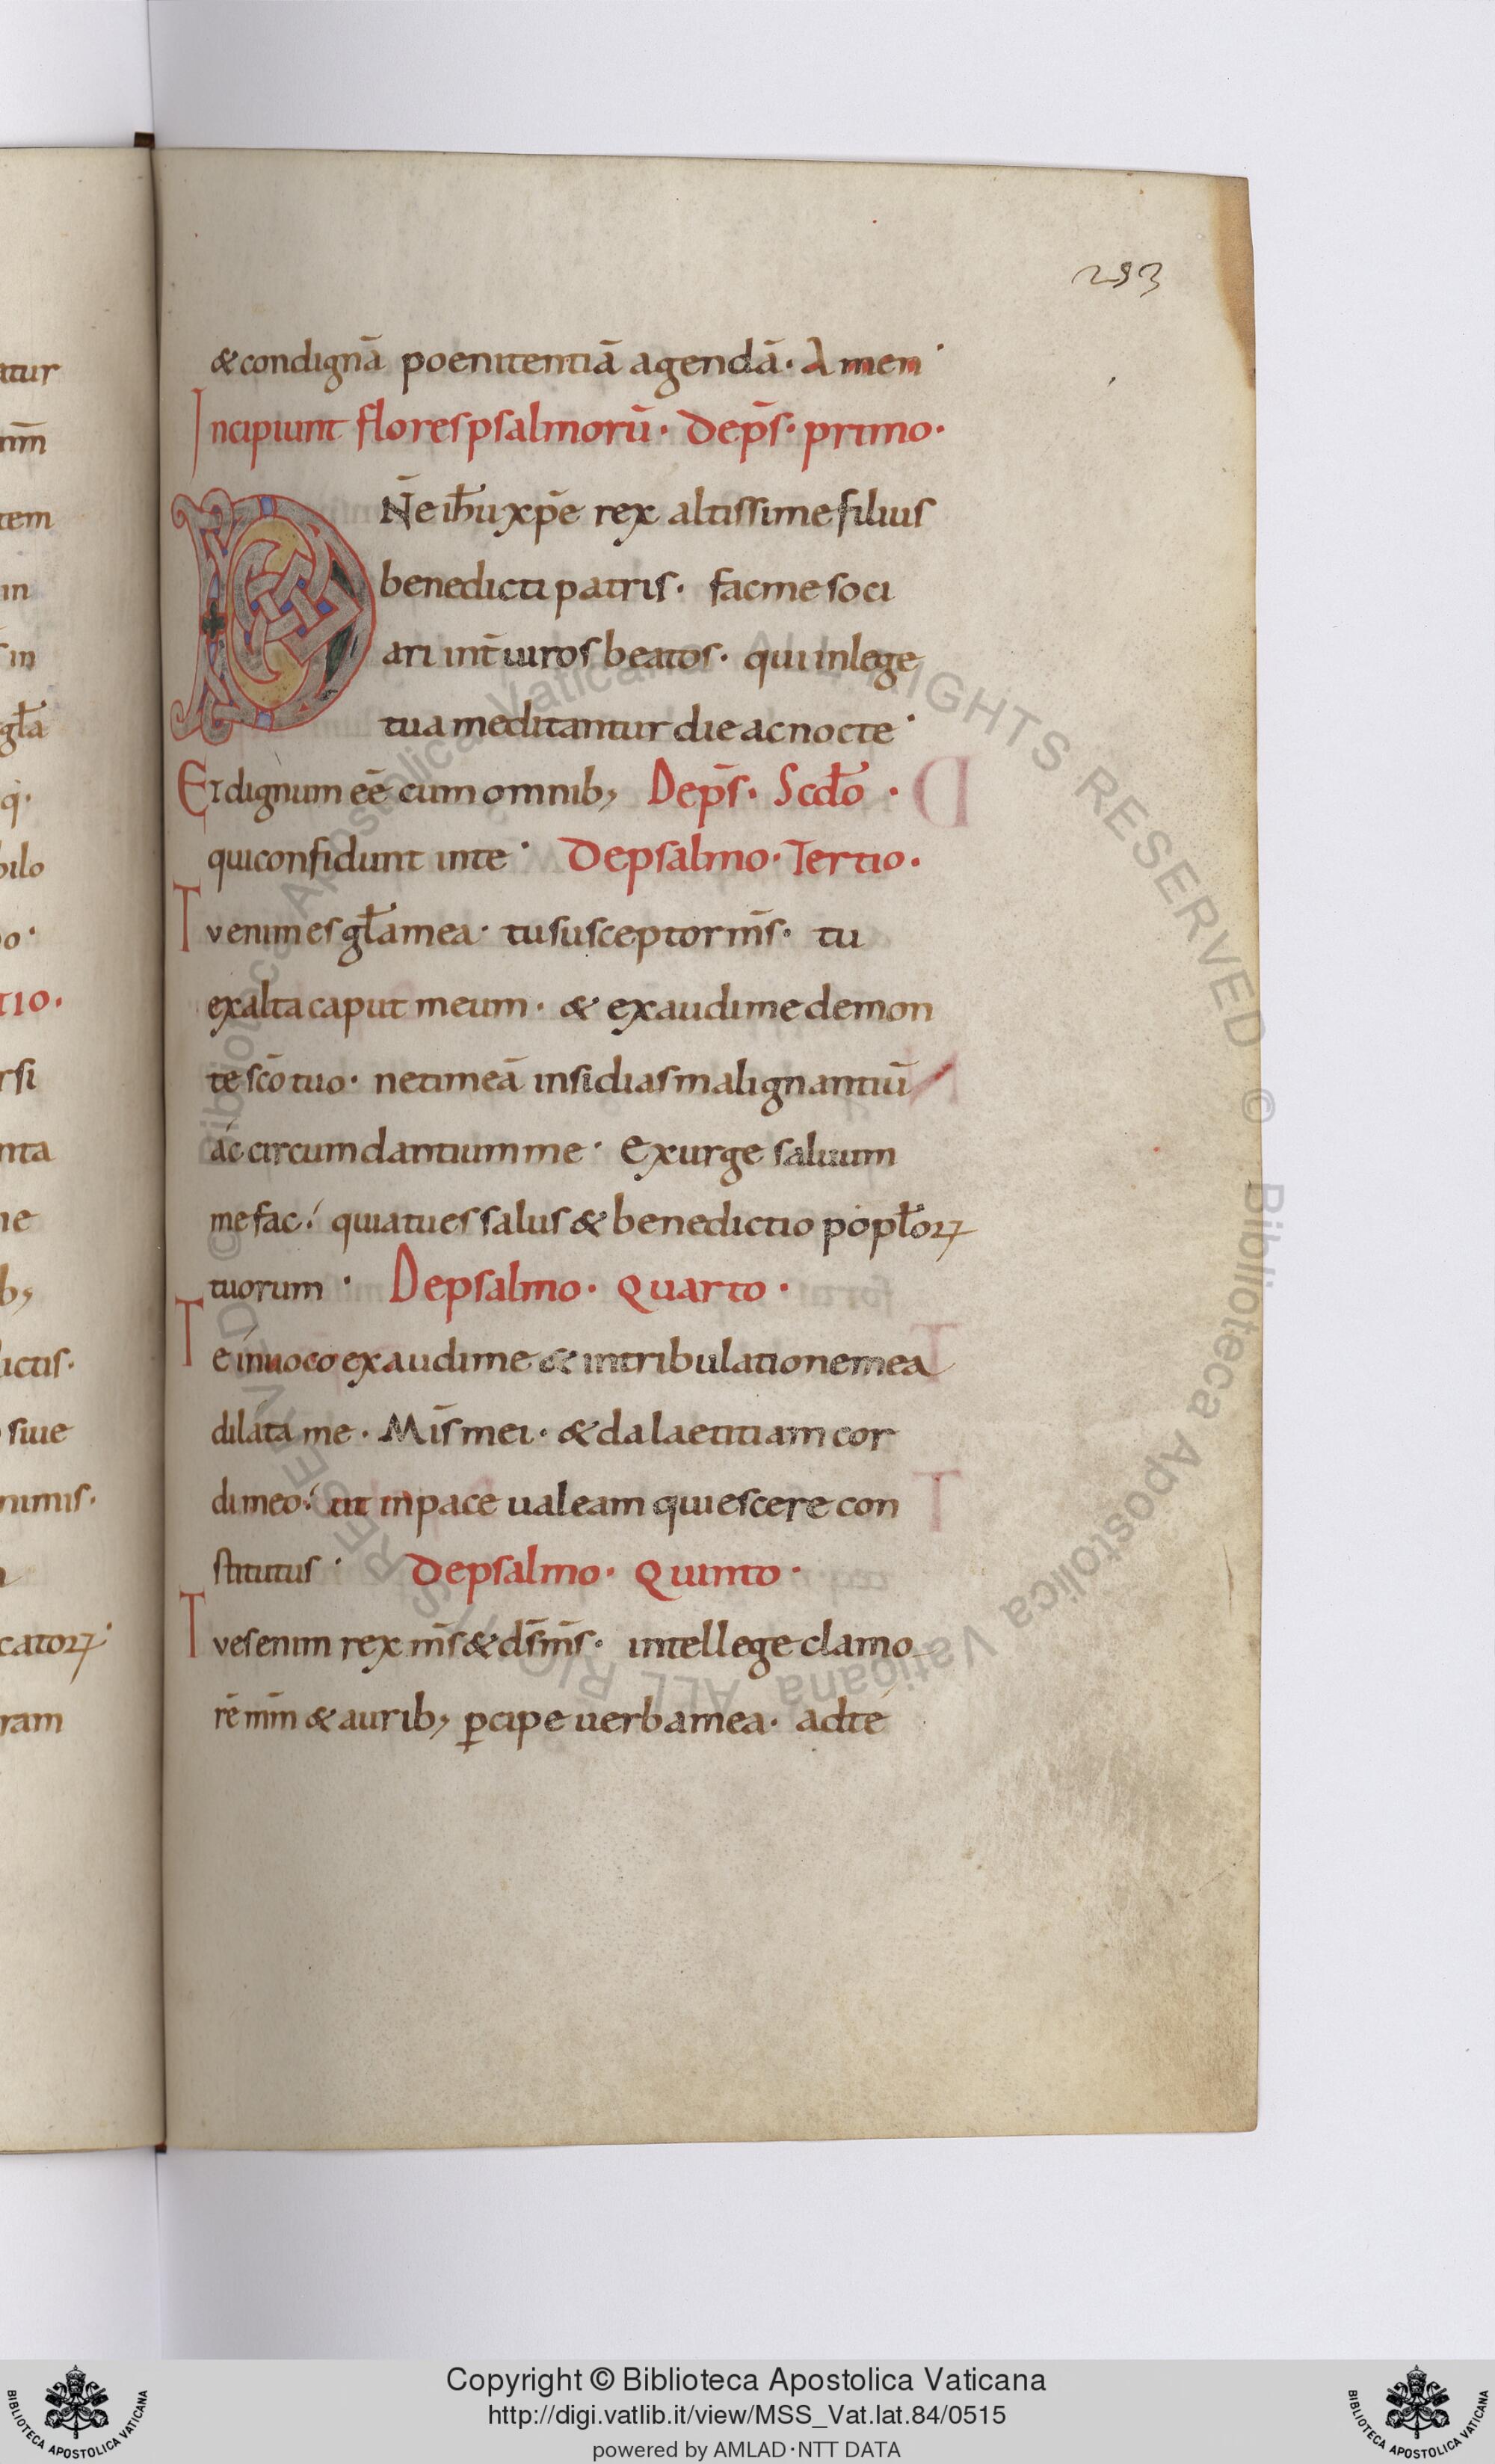 atur
mm̄
tem
in
in
gła
q·
bilo
o·
tio.
rsi
nta
ne
b;
lictis·
siue
nimis·
catoꝝ·
ram
293
& condignā poenitentiā agendā· Amen·
Incipiunt flores psalmorū· De ps̄· primo·
DN̄e ih̄u xp̄e rex altissime filius
benedicti patris· fac me soci
ari int̄ uiros beatos· qui in lege
tua meditantur die ac nocte·
Et dignum eē cum omnib; De ps̄· Scdo·
qui confidunt in te· De psalmo· Tertio·
Tu enim es gła mea· tu susceptor ms̄· tu
exalta caput meum· & exaudi me de mon
te sc̄o tuo· ne timeā insidias malignantiū
ac circumdantium me· Exurge saluum
me fac· quia tu es salus & benedictio popłoꝝ
tuorum· De psalmo· Quarto·
Te inuoco exaudi me & in tribulatione mea
dilata me· Mis̄ mei· & da laetitiam cor
di meo· ut in pace ualeam quiescere con
stitutus· De psalmo· Quinto·
Tu es enim rex ms̄ & ds̄ ms̄· intellege clamo
rē mm̄ & aurib; ꝑcipe uerba mea· ad te
Copyright © Biblioteca Apostolica Vaticana
http://digi.vatlib.it/view/MSS_Vat.lat.84/0515
powered by AMLAD·NTT DATA
BIBLIOTECA APOSTOLICA VATICANA
BIBLIOTECA APOSTOLICA VATICANA